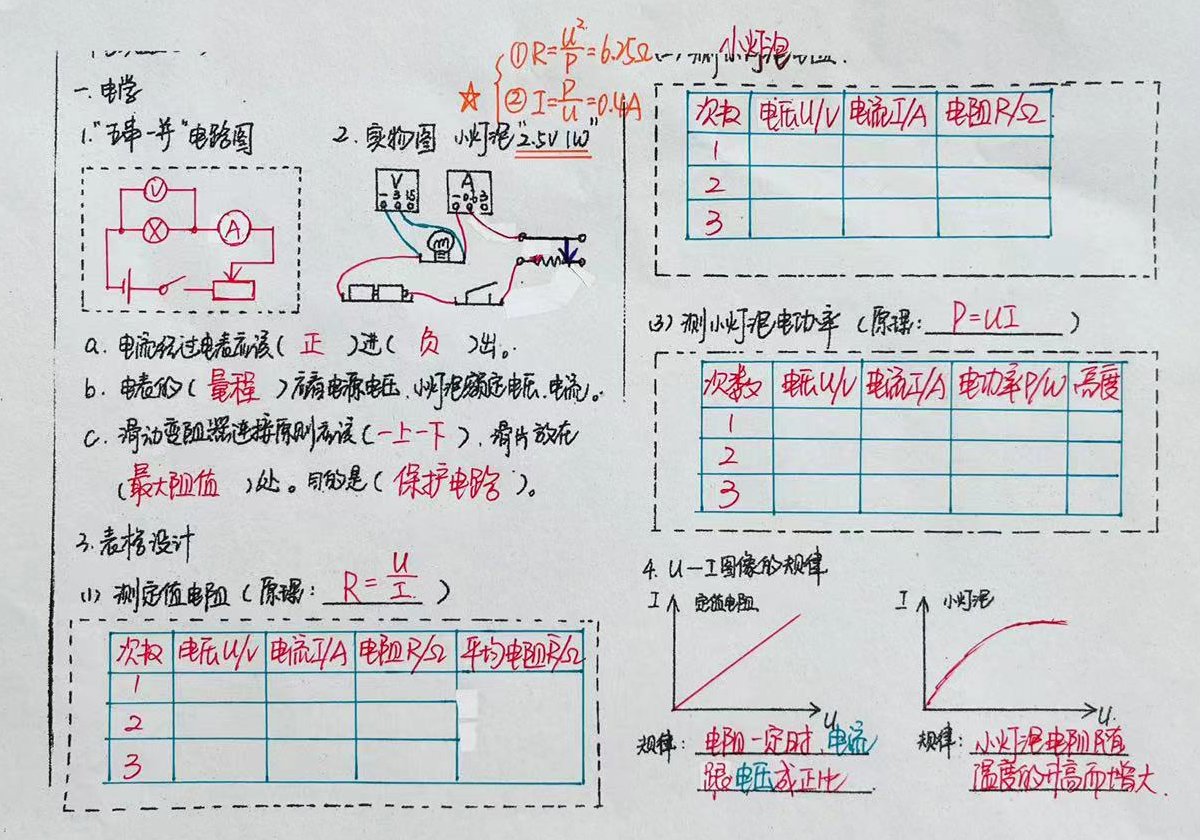 一.电学
① R=U²/P=6.25Ω
② I=P/U=0.4A
1."五串一并"电路图
2.实物图 小灯泡"2.5V 1W"
V
A
V
- 3 15
A
- 0.6 3
a.电流经过电表应该( 正 )进( 负 )出。
b.电表的( 量程 )应看电源电压、小灯泡额定电压、电流。
c.滑动变阻器连接原则应该(一上一下)、滑片放在
(最大阻值)处。目的是( 保护电路 )。
3.表格设计
(1)测定值电阻(原理: R=U/I )
次数 电压U/V 电流I/A 电阻R/Ω 平均电阻R/Ω
1
2
3
小灯泡
次数 电压U/V 电流I/A 电阻R/Ω
1
2
3
(3)测小灯泡电功率(原理: P=UI )
次数 电压U/V 电流I/A 电功率P/W 亮度
1
2
3
4. U-I图像的规律
I 定值电阻
U
规律: 电阻一定时、电流
跟电压成正比
I 小灯泡
U
规律: 小灯泡电阻随
温度的升高而增大.